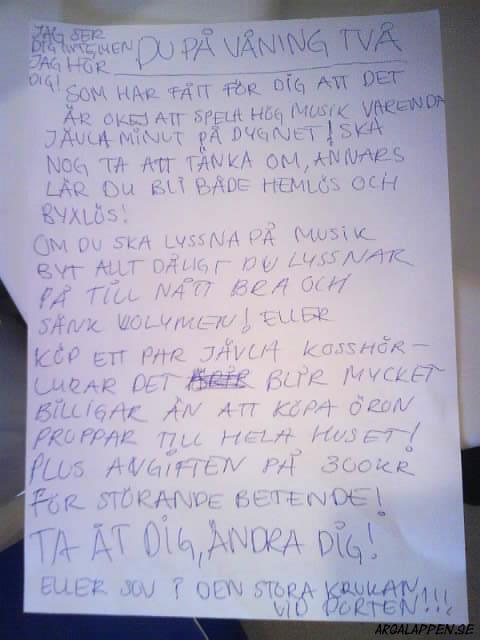 JAG SER
DIG INTE, MEN
JAG HÖR
DIG!
DU PÅ VÅNING TVÅ
SOM HAR FÅTT FÖR DIG ATT DET
ÄR OKEJ ATT SPELA HÖG MUSIK VARENDA
JÄVLA MINUT PÅ DYGNET! SKA
NOG TA ATT TÄNKA OM, ANNARS
LÄR DU BLI BÅDE HEMLÖS OCH
BYXLÖS!
OM DU SKA LYSSNA PÅ MUSIK
BYT ALLT DÅLIGT DU LYSSNAR
PÅ TILL NÅTT BRA OCH
SÄNK VOLYMEN! ELLER
KÖP ETT PAR JÄVLA KOSSHÖR-
LURAR DET BLIR MYCKET
BILLIGAR ÄN ATT KÖPA ÖRON
PROPPAR TILL HELA HUSET!
PLUS ANGIFTEN PÅ 300KR
FÖR STÖRANDE BETENDE!
TA ÅT DIG, ÄNDRA DIG!
ELLER SOV I DEN STORA KRUKAN
VID PORTEN!!!
ARGALAPPEN.SE